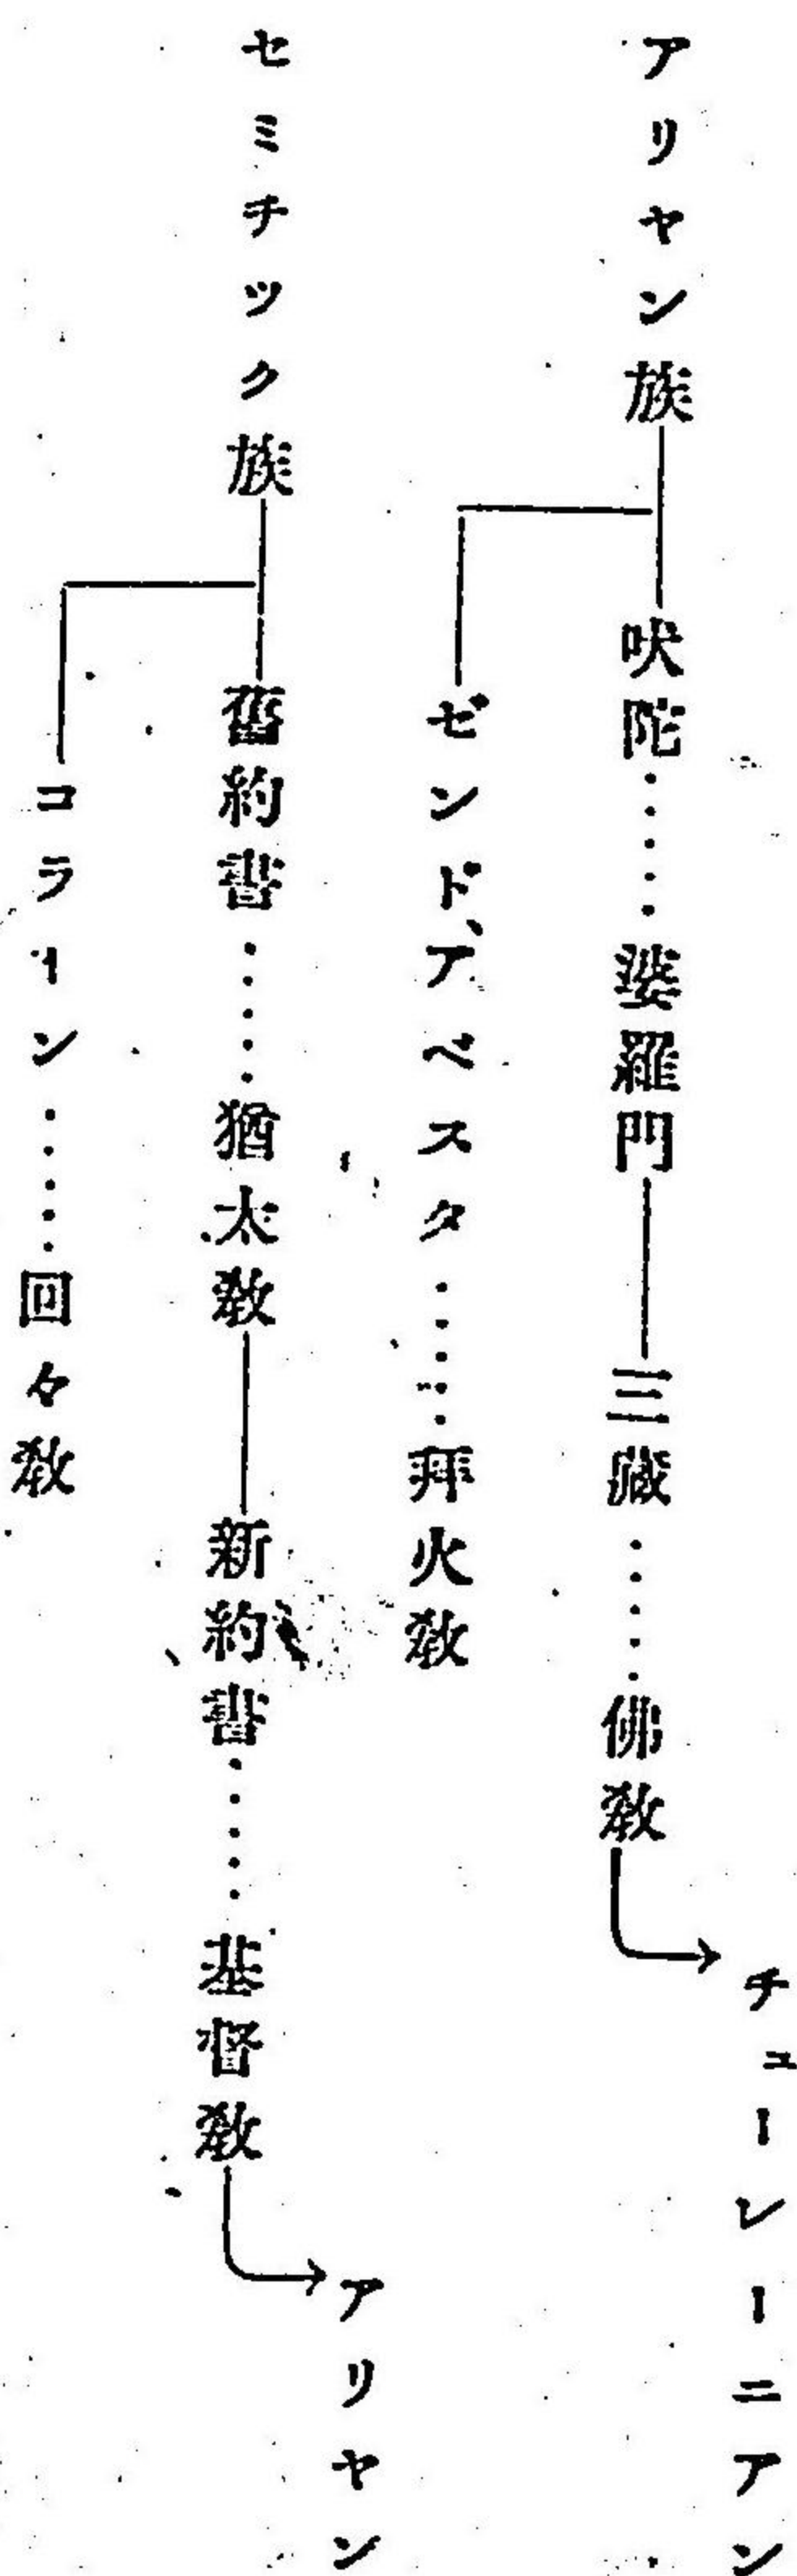 アリヤン族
吠陀……婆羅門
三藏……佛教
チューレーニアン
ゼンド、アベスタ……拜火教
セミチック族
舊約書……猶太教
新約書……基督教
アリヤン
コラーン……回々教